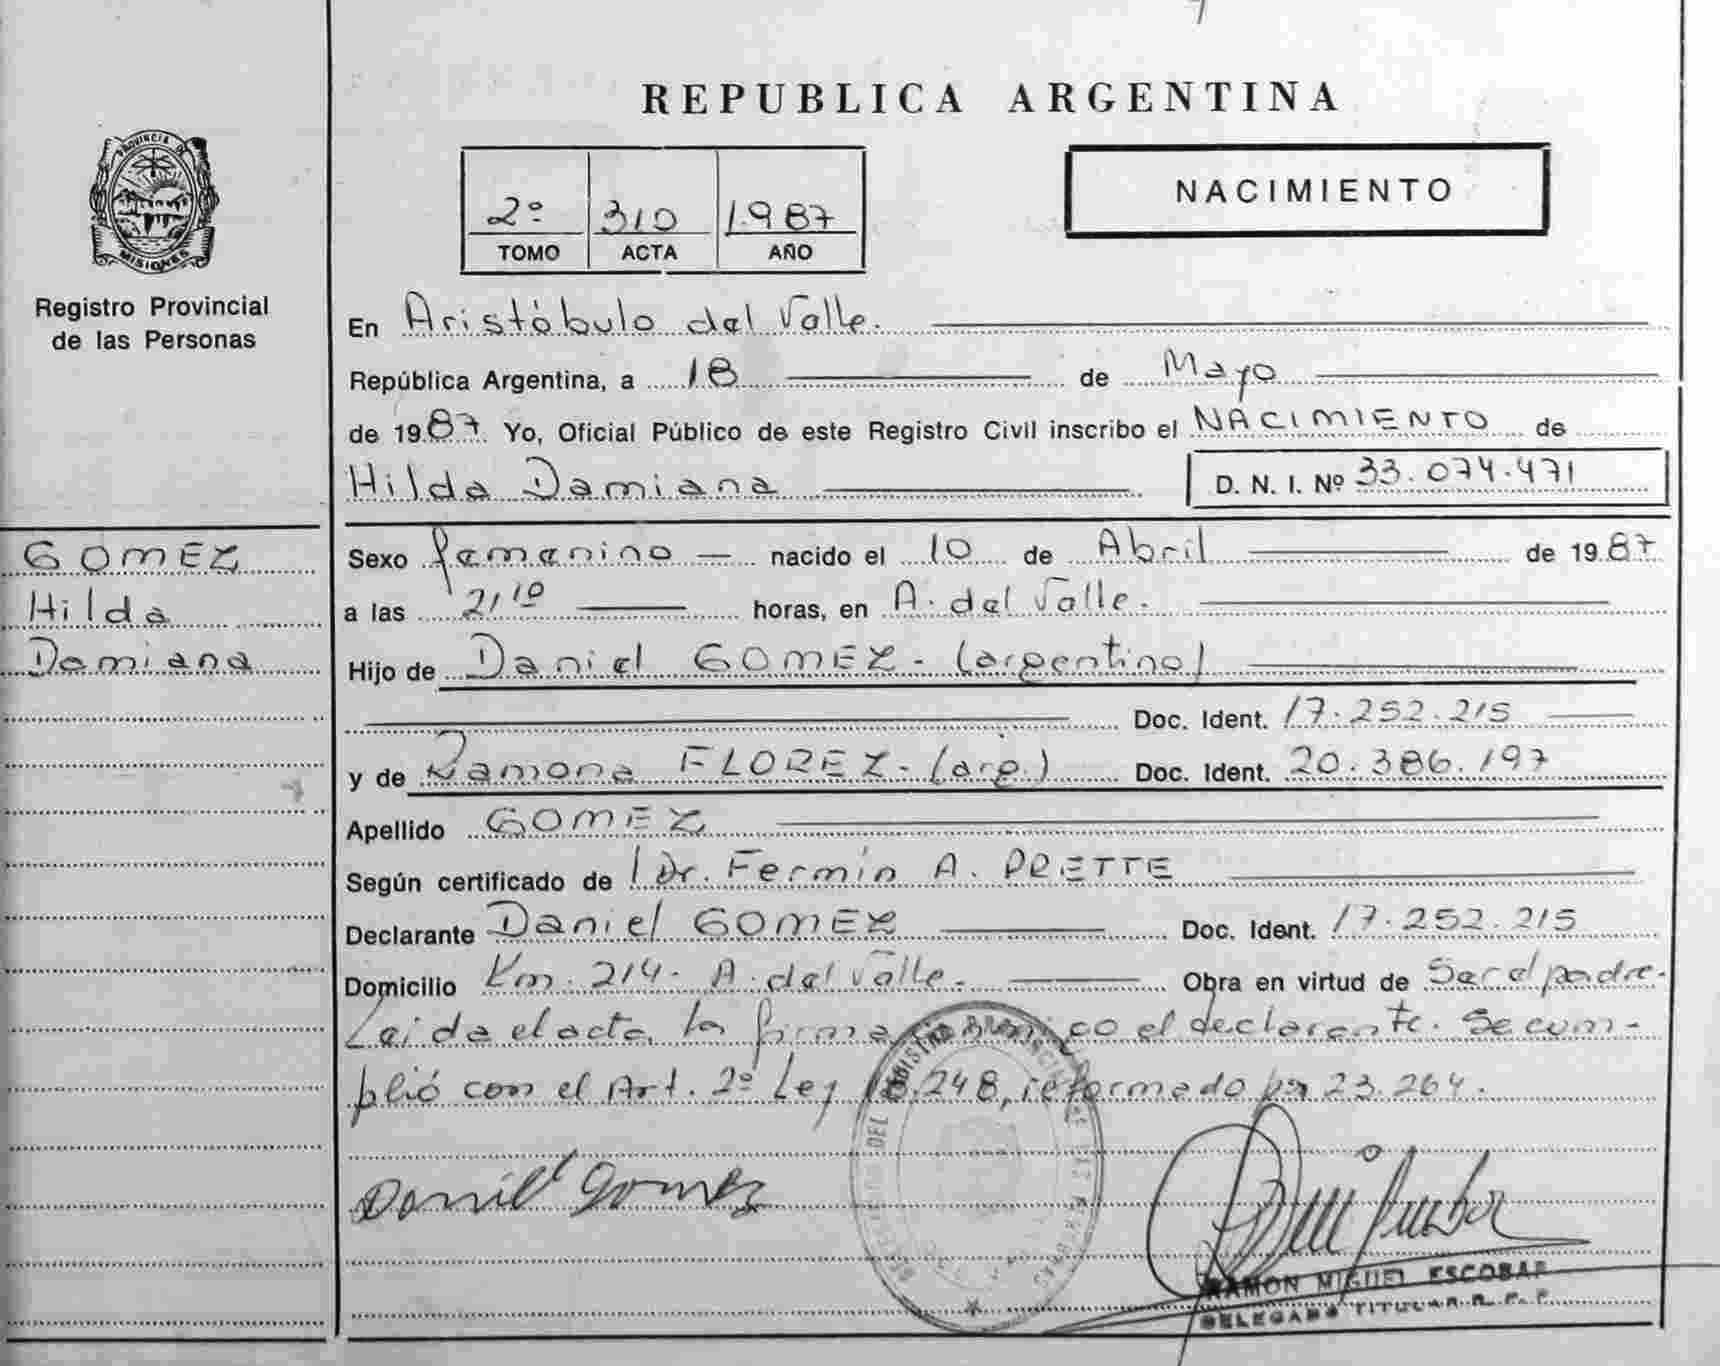 REPUBLICA ARGENTINA
PROVINCIA DE
MISIONES
Registro Provincial
de las Personas
2º 310 1.987
TOMO ACTA AÑO
NACIMIENTO
En Aristóbulo del Valle.
República Argentina, a 18 de Mayo
de 1987. Yo, Oficial Público de este Registro Civil inscribo el NACIMIENTO de
Hilda Damiana D. N. I. Nº 33.074.471
GOMEZ
Hilda
Damiana
Sexo femenino nacido el 10 de Abril de 1987
a las 21,10 horas, en A. del Valle.
Hijo de Daniel GOMEZ - (argentino)
Doc. Ident. 17.252.215
y de Ramona FLOREZ - (arg.) Doc. Ident. 20.386.197
Apellido GOMEZ
Según certificado de Dr. Fermín A. PRETTE
Declarante Daniel GOMEZ Doc. Ident. 17.252.215
Domicilio Km. 214 - A. del Valle. Obra en virtud de Ser el padre.
Leída el acta, la firma conmigo el declarante. Se cum-
plió con el Art. 2º Ley 18.248, reformado por 23.264.
Daniel Gomez
RAMON MIGUEL ESCOBAR
DELEGADO TITULAR R. P. P.